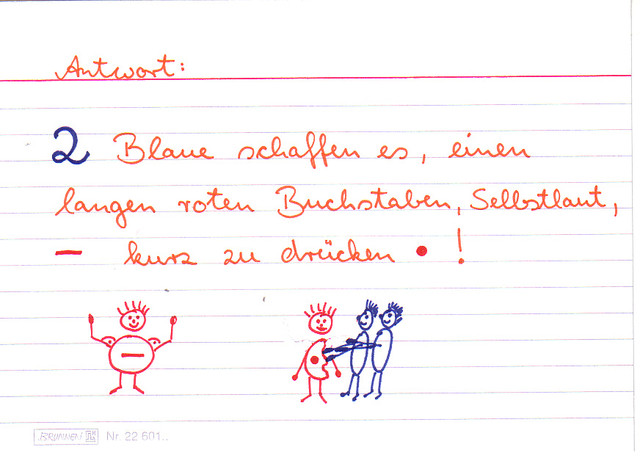 Antwort:
2 Blaue schaffen es, einen
langen roten Buchstaben, Selbstlaut,
– kurz zu drücken • !
BRUNNEN Nr. 22 601